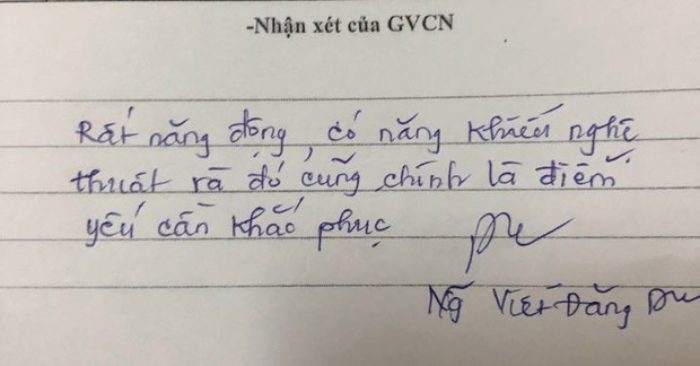 -Nhận xét của GVCN
Rất năng động, có năng khiếu nghệ
thuật và đó cũng chính là điểm
yếu cần khắc phục
Ng Viết Đăng Du